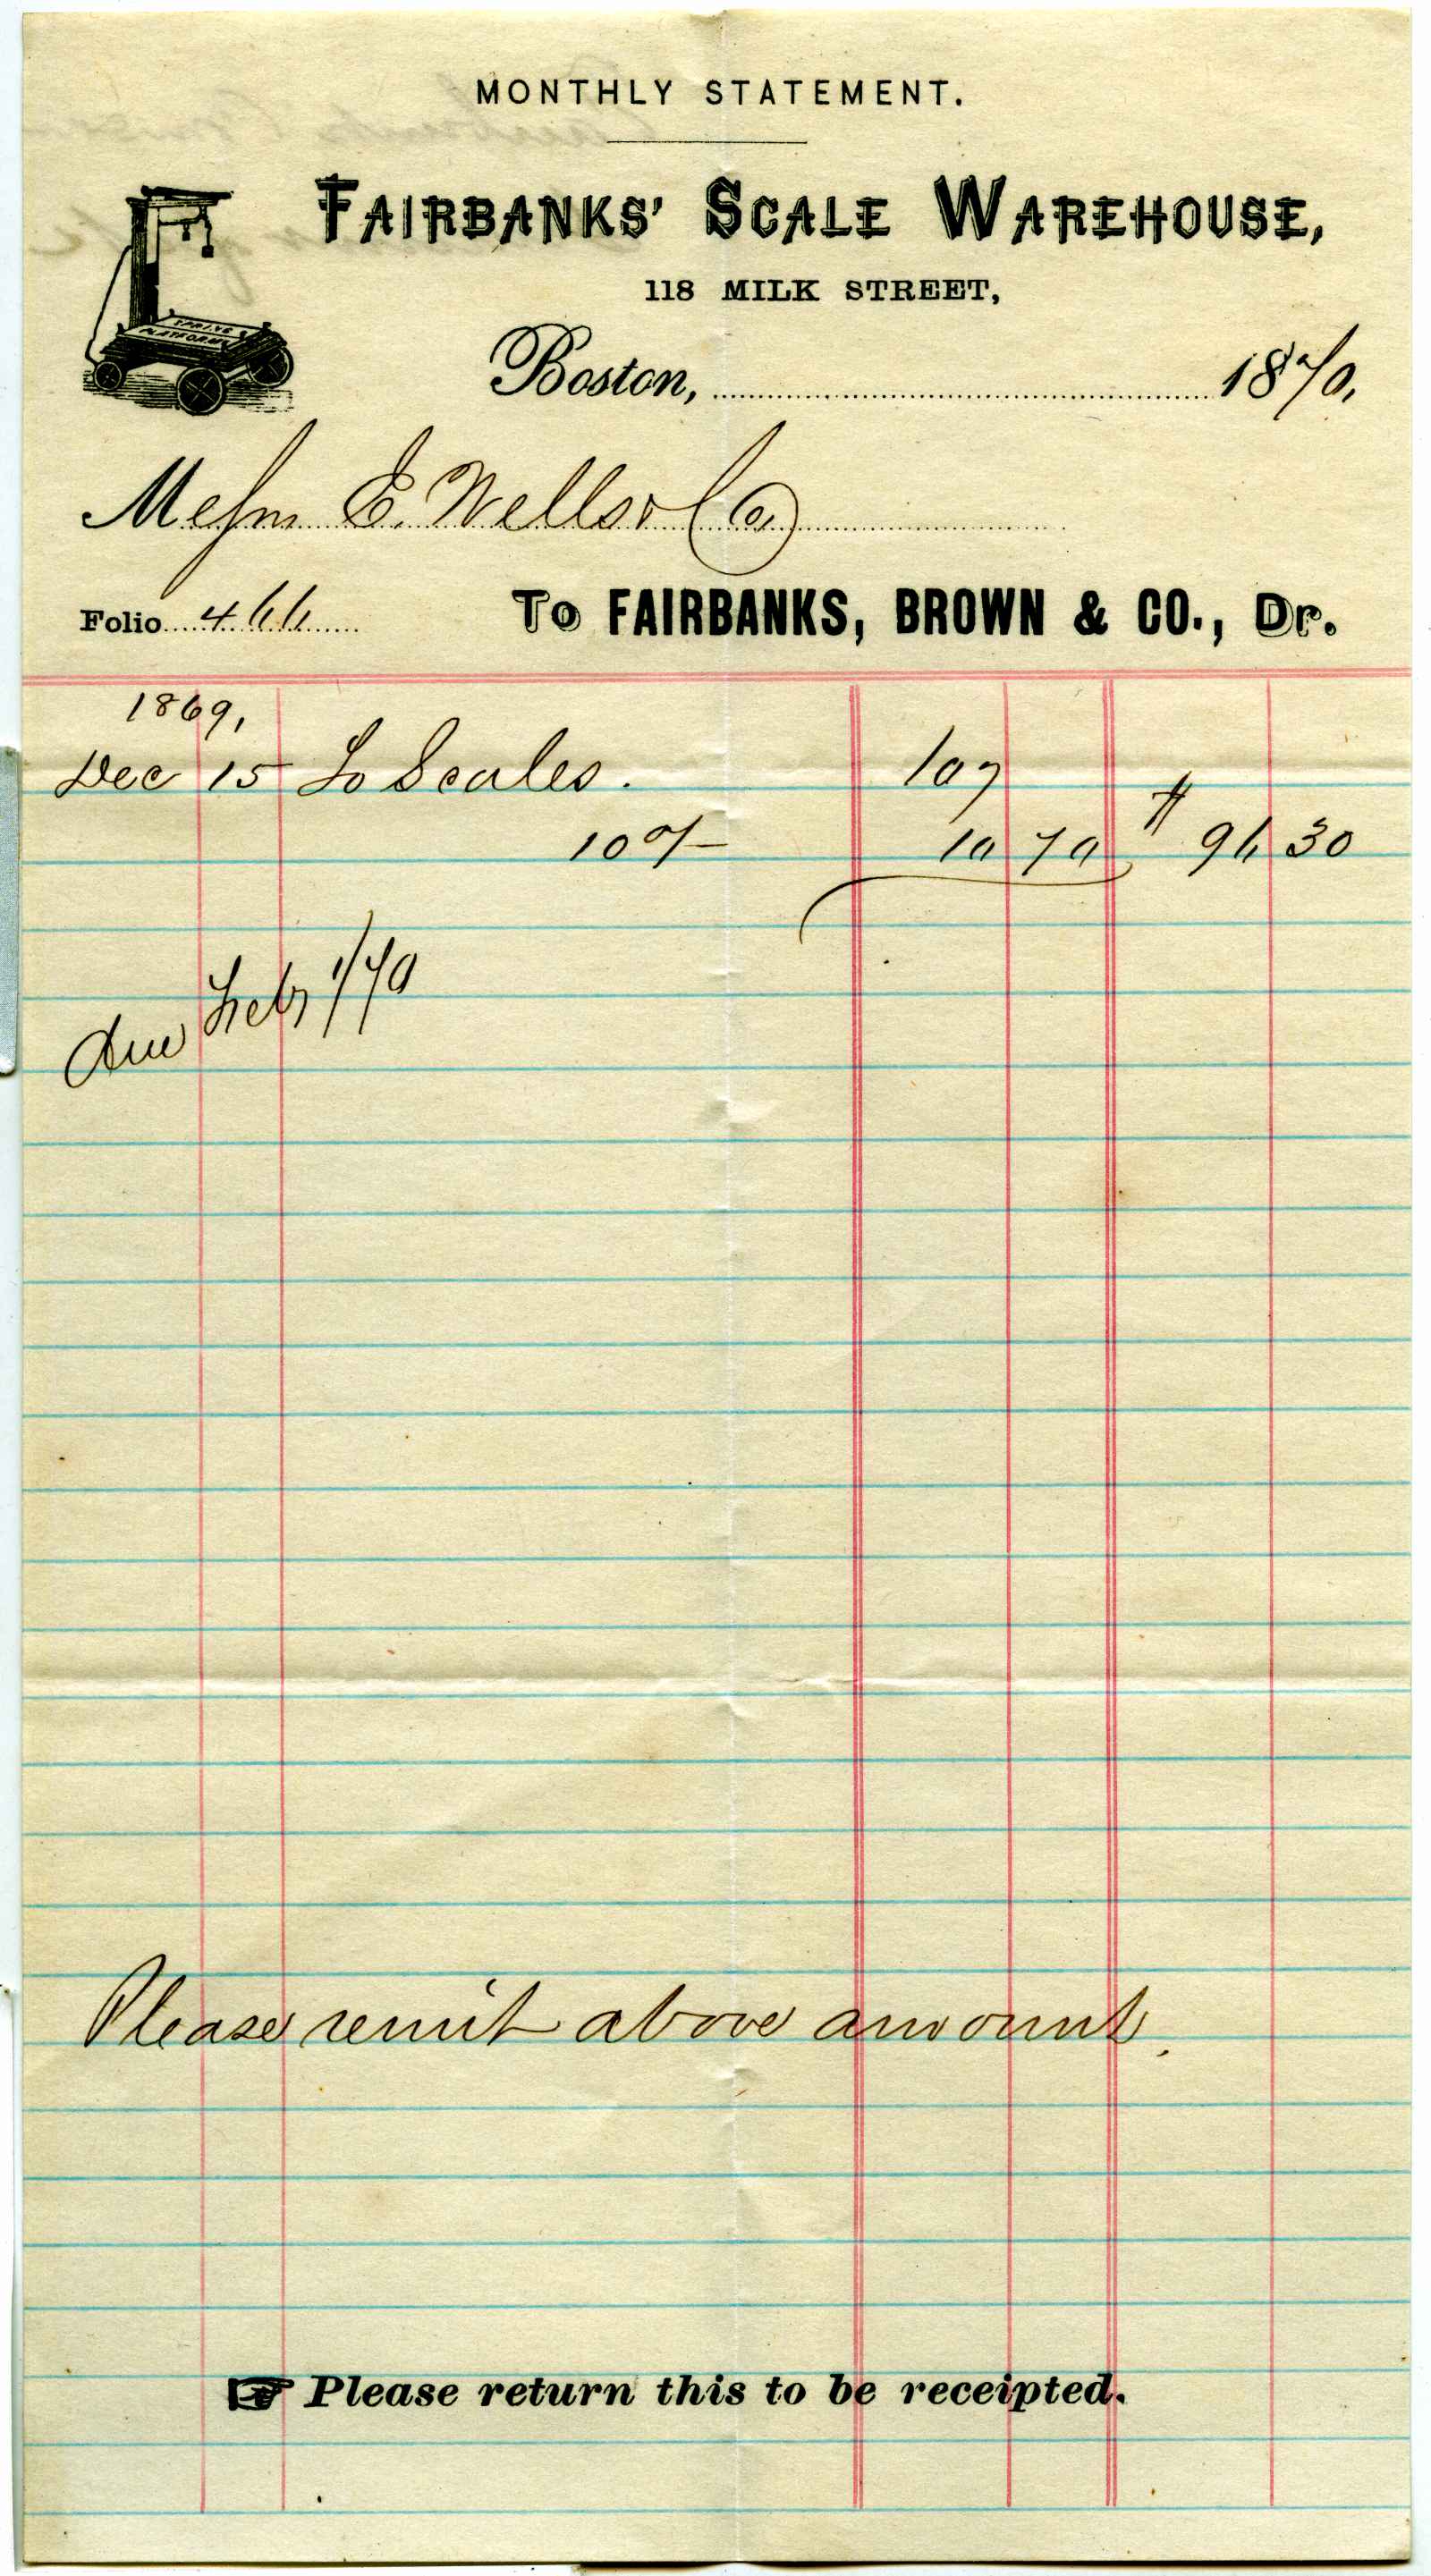 MONTHLY STATEMENT.
FAIRBANKS' SCALE WAREHOUSE,
118 MILK STREET,
SPRING
PLATFORM
Boston, 1870,
Messrs E. Wells & Co
Folio 466 To FAIRBANKS, BROWN & CO., Dr.
1869,
Dec 15 To Scales. 107
10 % 10 70 $ 96 30
Due Feby 1/70
Please remit above amount.
☞ Please return this to be receipted.